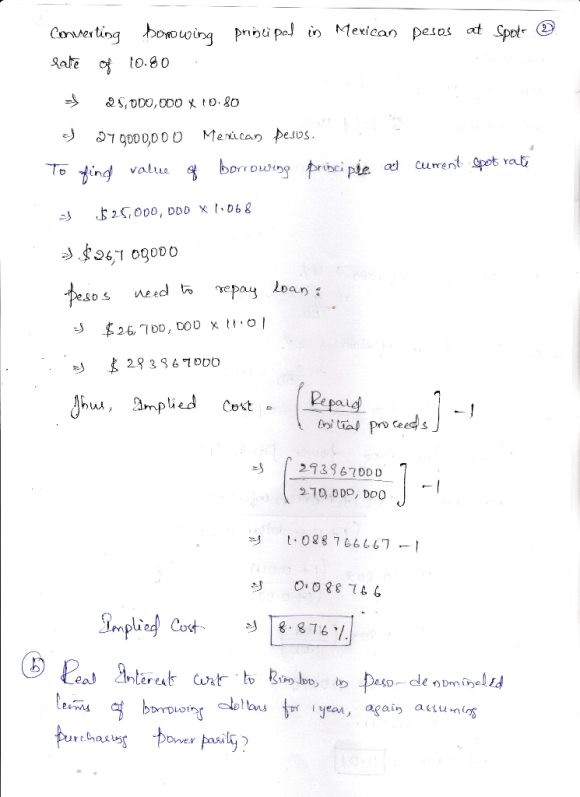 Converting borrowing principal in Mexican pesos at Spot- ②
rate of 10.80
⇒ 25,000,000 x 10.80
⇒ 270000,000 Mexican pesos.
To find value of borrowing principle at current spot rate
⇒ $25,000,000 x 1.068
⇒ $26,700000
Pesos need to repay loan:
⇒ $26,700,000 x 11.01
⇒ $293967000
Thus, Implied Cost = (Repaid / initial proceeds] - 1
⇒ (293967000 / 270,000,000] - 1
⇒ 1.088766667 - 1
⇒ 0.088766
Implied Cost ⇒ 8.876%
(b) Real Interest cost to Bimboo, in peso-denominated
terms of borrowing dollars for 1 year, again assuming
purchasing power parity?